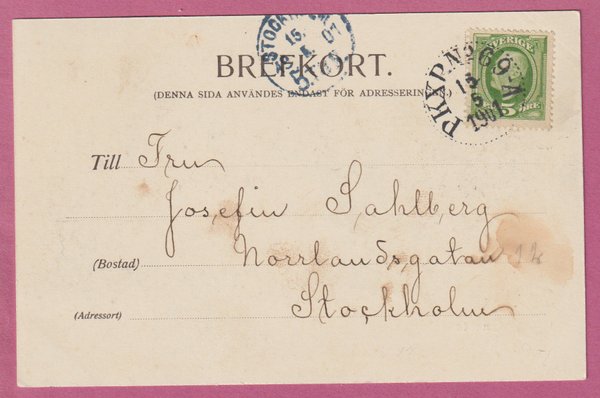 BREFKORT.
(DENNA SIDA ANVÄNDES ENDAST FÖR ADRESSERINGEN.)
SVERIGE
5 ÖRE
PKXP.N:o 69.A
15
5
1901
STOCKHOLM
15.
5.
01
Till Fru
Josefin Sahlberg
(Bostad) Norrlandsgatan
(Adressort) Stockholm